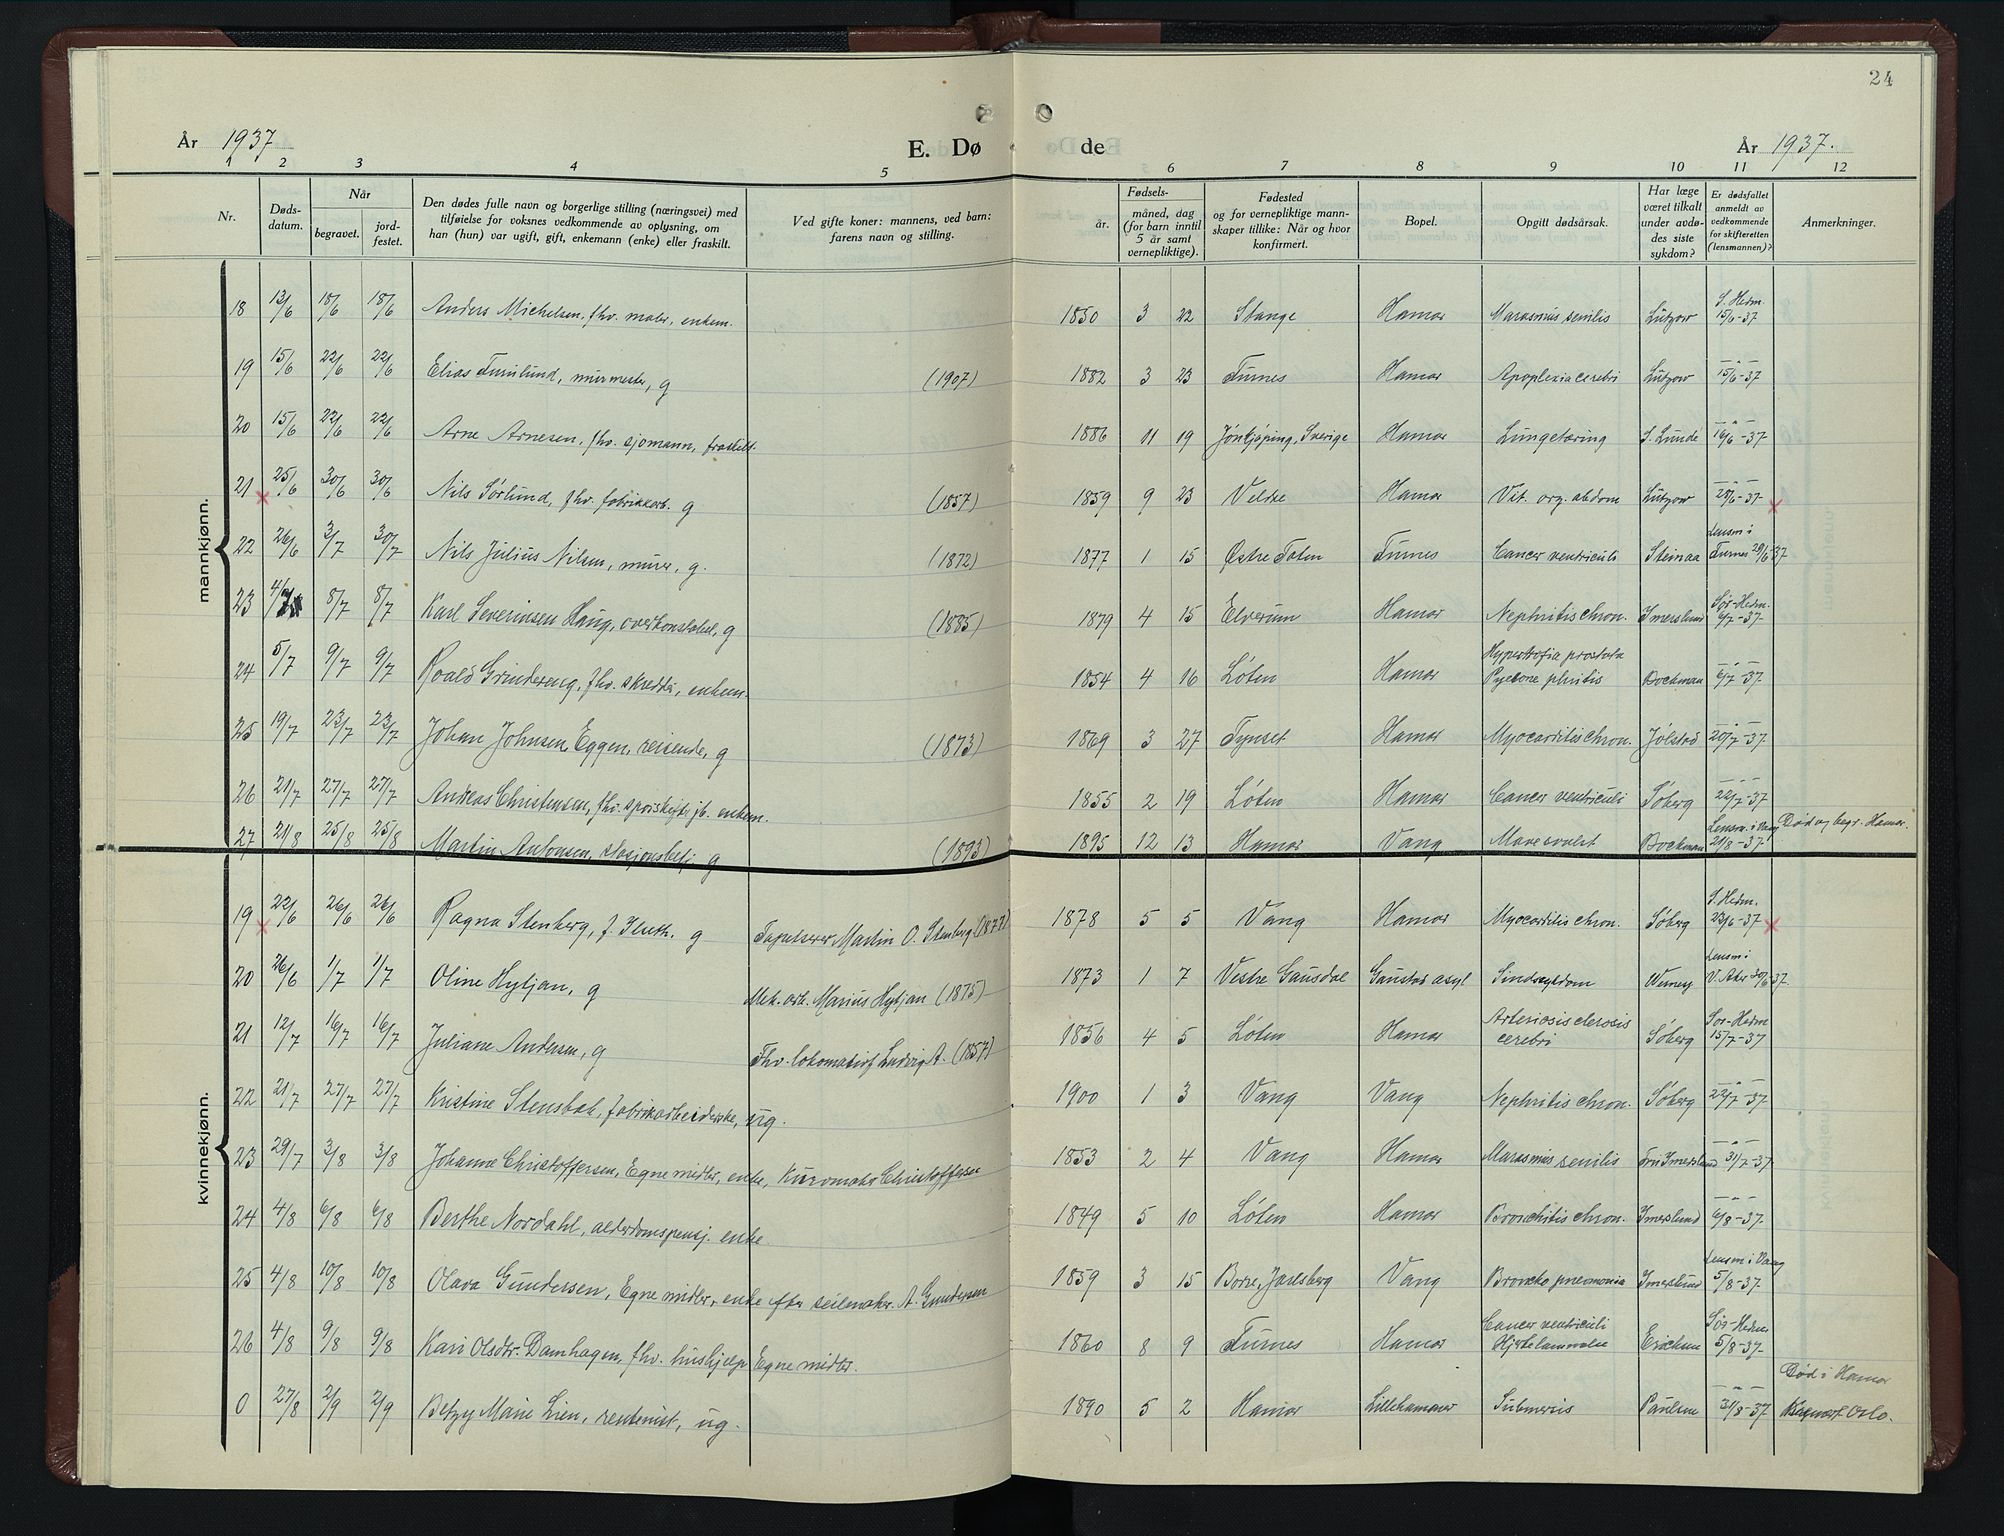 24
År 1937
E. Dø de
År 1937.
1 2 3 4 5 6 7 8 9 10 11 12
Nr.
Døds-
datum.
Når
begravet.
jord-
festet.
Den dødes fulle navn og borgerlige stilling (næringsvei) med
tilføielse for voksnes vedkommende av oplysning, om
han (hun) var ugift, gift, enkemann (enke) eller fraskilt.
Ved gifte koner: mannens, ved barn:
farens navn og stilling.
Fødsels-
år.
måned, dag
(for barn inntil
5 år samt
vernepliktige).
Fødested
og for vernepliktige mann-
skaper tillike: Når og hvor
konfirmert.
Bopel.
Opgitt dødsårsak.
Har læge
været tilkalt
under avdø-
des siste
sykdom?
Er dødsfallet
anmeldt av
vedkommende
for skifteretten
(lensmannen)?
Anmerkninger.
mannkjønn.
18 13/6 18/6 18/6 Anders Michelsen, fhv. maler, enkem. 1850 3 22 Stange Hamar Marasmus senilis Lützow S. Hedm. 15/6-37
19 15/6 22/6 22/6 Elias Furulund, murmester, g (1907) 1882 3 23 Furnes Hamar Apoplexia cerebri Lützow —"— 15/6-37
20 15/6 22/6 22/6 Arne Arnesen, fhv. sjømann, fraskilt. 1886 11 19 Jönköping, Sverige Hamar Lungetæring S. Lunde —"— 16/6-37
21 × 25/6 30/6 30/6 Nils Sørlund, fhv. fabrikkarb. g (1857) 1859 9 23 Veldre Hamar Vit. org. abdom Lützow 28/6-37 ×
22 26/6 3/7 30/7 Nils Julius Nilsen, murer, g. (1872) 1877 1 15 Østre Toten Furnes Cancer ventriculi Steinaa Lensm i Furnes 29/6-37
23 4/7 8/7 8/7 Karl Severinsen Haug, overkonstabel, g (1885) 1879 4 15 Elverum Hamar Nephritis chron. Imerslund Sør-Hedm. 6/7-37
24 5/7 9/7 9/7 Roald Grindereng, fhv. skredder, enkem. 1854 4 16 Løten Hamar Hypertrofia prostata Pyelonephritis Bockman —"— 6/7-37
25 19/7 23/7 23/7 Johan Johnsen Eggen, reisende, g (1873) 1869 3 27 Tynset Hamar Myocarditis chron. Jølstad —"— 20/7-37
26 21/7 27/7 27/7 Andreas Christensen, fhv. sporskifter jb. enkem. 1855 2 19 Løten Hamar Cancer ventriculi Søberg —"— 22/7-37
27 21/8 25/8 25/8 Martin Antonsen, stasjonsbetj. g (1893) 1895 12 13 Hamar Vang Mavesvulst Bockman Lensm. i Vang 21/8-37 Død og begr. Hamar.
kvinnekjønn.
19 × 22/6 26/6 26/6 Ragna Stenberg, f. g Tapetserer Martin O. Stenberg (1877) 1878 5 5 Vang Hamar Myocarditis chron. Søberg S. Hedm. 23/6-37 ×
20 26/6 1/7 1/7 Oline Hytjan, g Mek. arb. Marius Hytjan (1875) 1873 1 7 Vestre Gausdal Gaustad asyl Sindssykdom Lensm i V. Aker 30/6-37
21 12/7 16/7 16/7 Juliane Andersen, g Fhv. lokomotivf Ludvig A. (1857) 1856 4 5 Løten Hamar Arteriosisclerosis cerebri Søberg Sør-Hedm 15/7-37
22 21/7 27/7 27/7 Kristine Stensbak, fabrikarbeiderske, ug. 1900 1 3 Vang Vang Nephritis chron. Søberg —"— 22/7-37
23 29/7 3/8 3/8 Johanne Christoffersen, Egne midler, enke, Kurvmaker Christoffersen 1853 2 4 Vang Hamar Marasmus senilis Fru Imerslund —"— 31/7-37
24 4/8 6/8 6/8 Berthe Nordahl, alderdomspensj. enke. 1849 5 10 Løten Hamar Bronchitis chron. Imerslund —"— 6/8-37
25 4/8 10/8 10/8 Olava Gundersen, Egne midler, enke efter seilmaker. A. Gundersen 1859 3 15 Borre, Jarlsberg Vang Bronchopneumonia Imerslund Lensm i Vang 5/8-37
26 4/8 9/8 9/8 Kari Olsdtr. Damhagen, fhv. hushjelp Egne midler. 1860 8 9 Furnes Hamar Cancer ventriculi Hjertelammelse Erichsen Sør-Hedm 5/8-37
0 27/8 2/9 2/9 Betzy Marie Lien, rentenist, ug. 1890 5 2 Hamar Lillehammer Submersis Paulsen —"— 31/8-37 Død i Hamar Begravet Oslo.